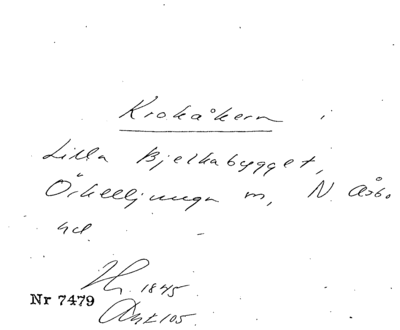 Krokåkern i
Lilla Bjelkabygget,
Örkelljunga m, N. Åsbo
hd.
1845
Nr 7479
Akt 105